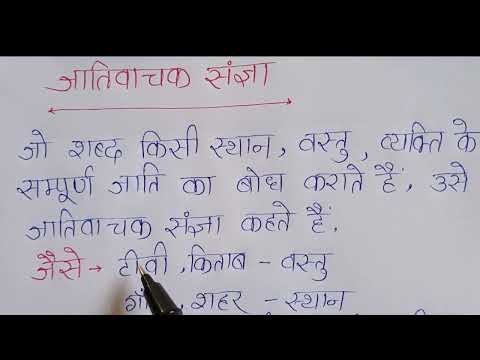 जातिवाचक संज्ञा
जो शब्द किसी स्थान, वस्तु, व्यक्ति के
सम्पूर्ण जाति का बोध कराते हैं, उसे
जातिवाचक संज्ञा कहते हैं.
जैसे → टीवी, किताब - वस्तु
शहर - स्थान